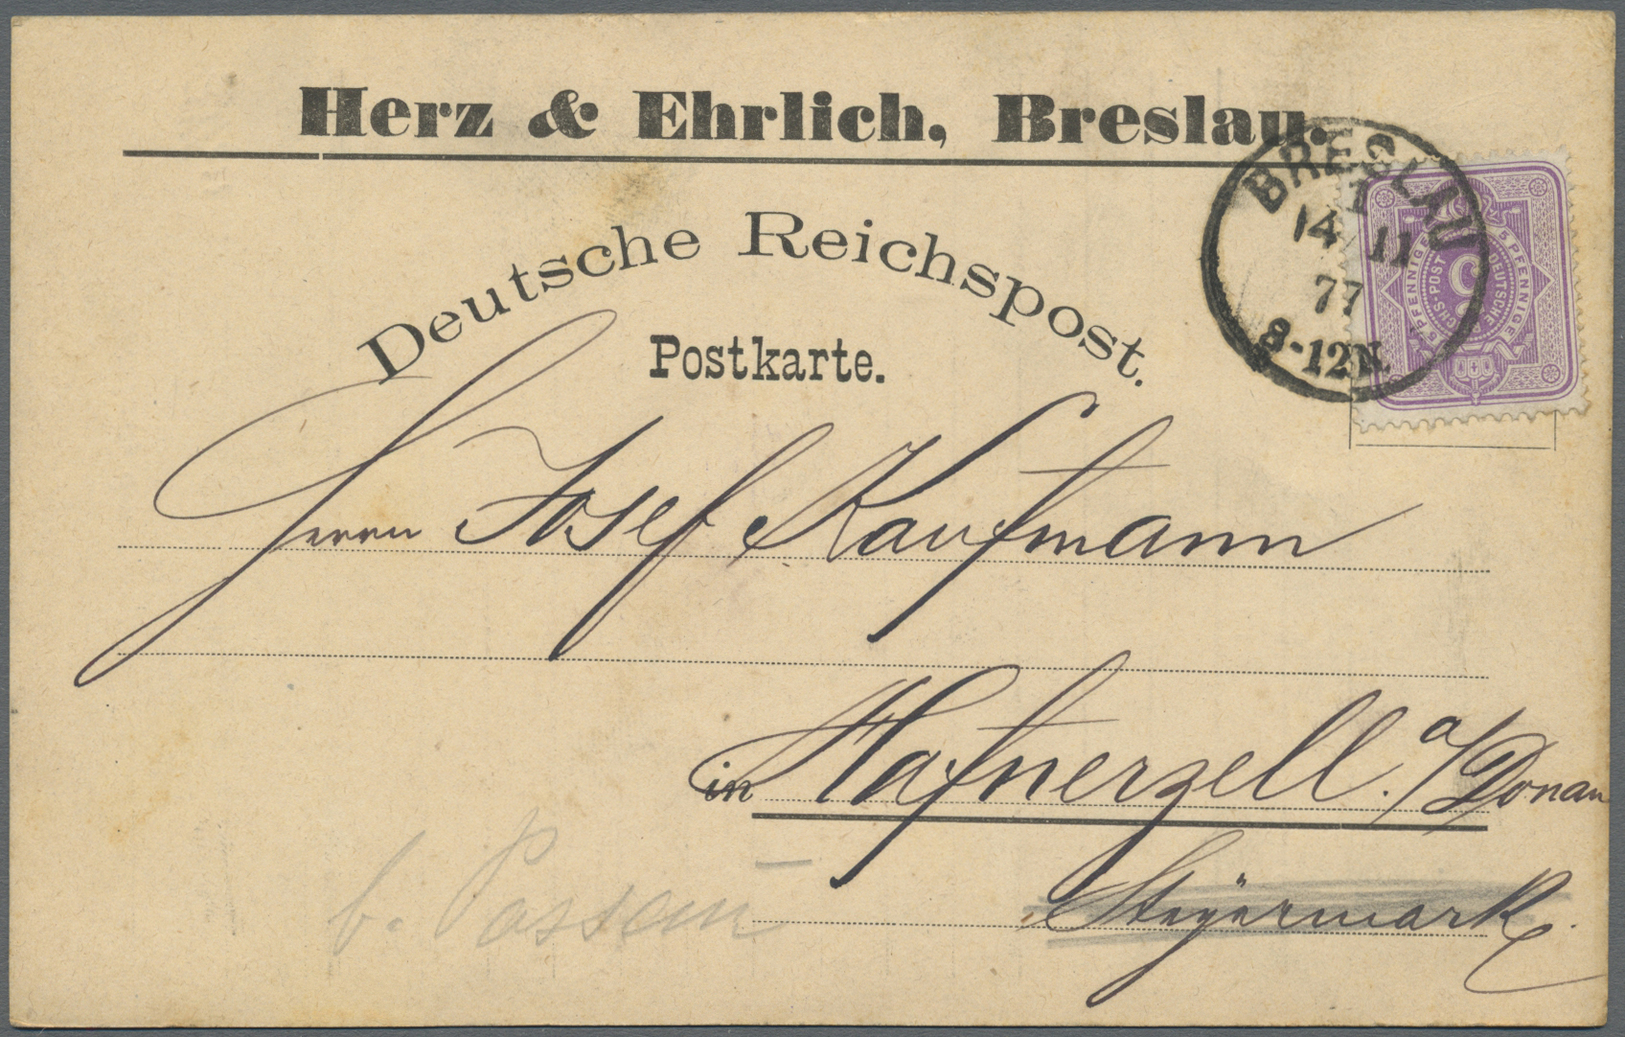 Herz & Ehrlich, Breslau.
Deutsche Reichspost.
Postkarte.
BRESLAU
1
14/11
77
8-12N.
5 PFENNIGE 5 PFENNIGE
DEUTSCHE REICHS-POST
5
Herrn Josef Kaufmann
in Hafnerzell. a/Donau
Steyermark.
b. Passau